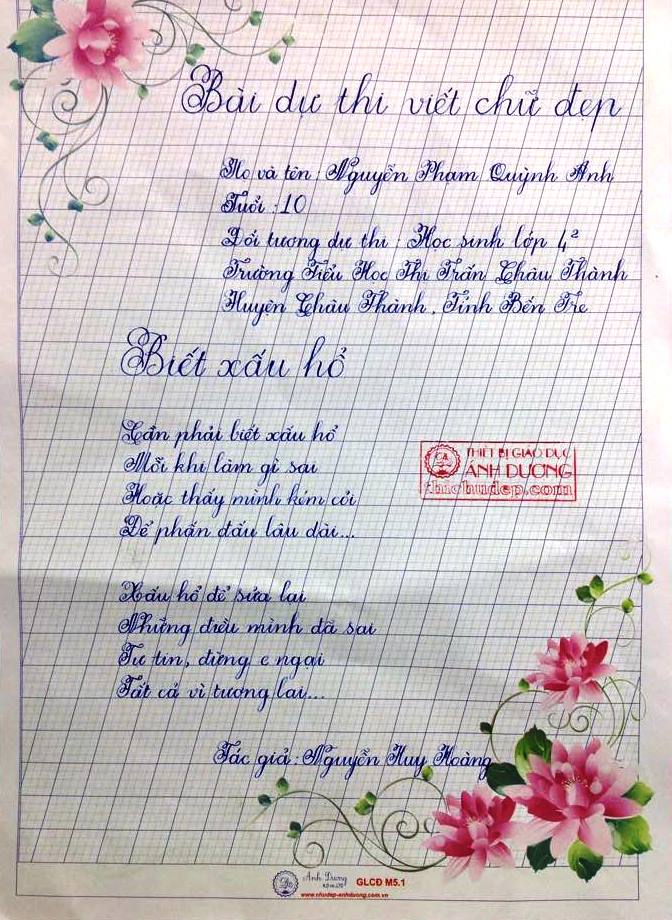 Bài dự thi viết chữ đẹp
Họ và tên : Nguyễn Phạm Quỳnh Anh
Tuổi : 10
Đối tượng dự thi : Học sinh lớp 4²
Trường Tiểu Học Thị Trấn Châu Thành
Huyện Châu Thành, Tỉnh Bến Tre
Biết xấu hổ
Cần phải biết xấu hổ
Mỗi khi làm gì sai
Hoặc thấy mình kém cỏi
Để phấn đấu lâu dài...
THIẾT BỊ GIÁO DỤC
ÁNH DƯƠNG
thichudep.com
Xấu hổ để sửa lại
Những điều mình đã sai
Tự tin, đừng e ngại
Tất cả vì tương lai...
Tác giả : Nguyễn Huy Hoàng
Anh Dương
GLCĐ M5.1
www.nhudep-anhduong.com.vn